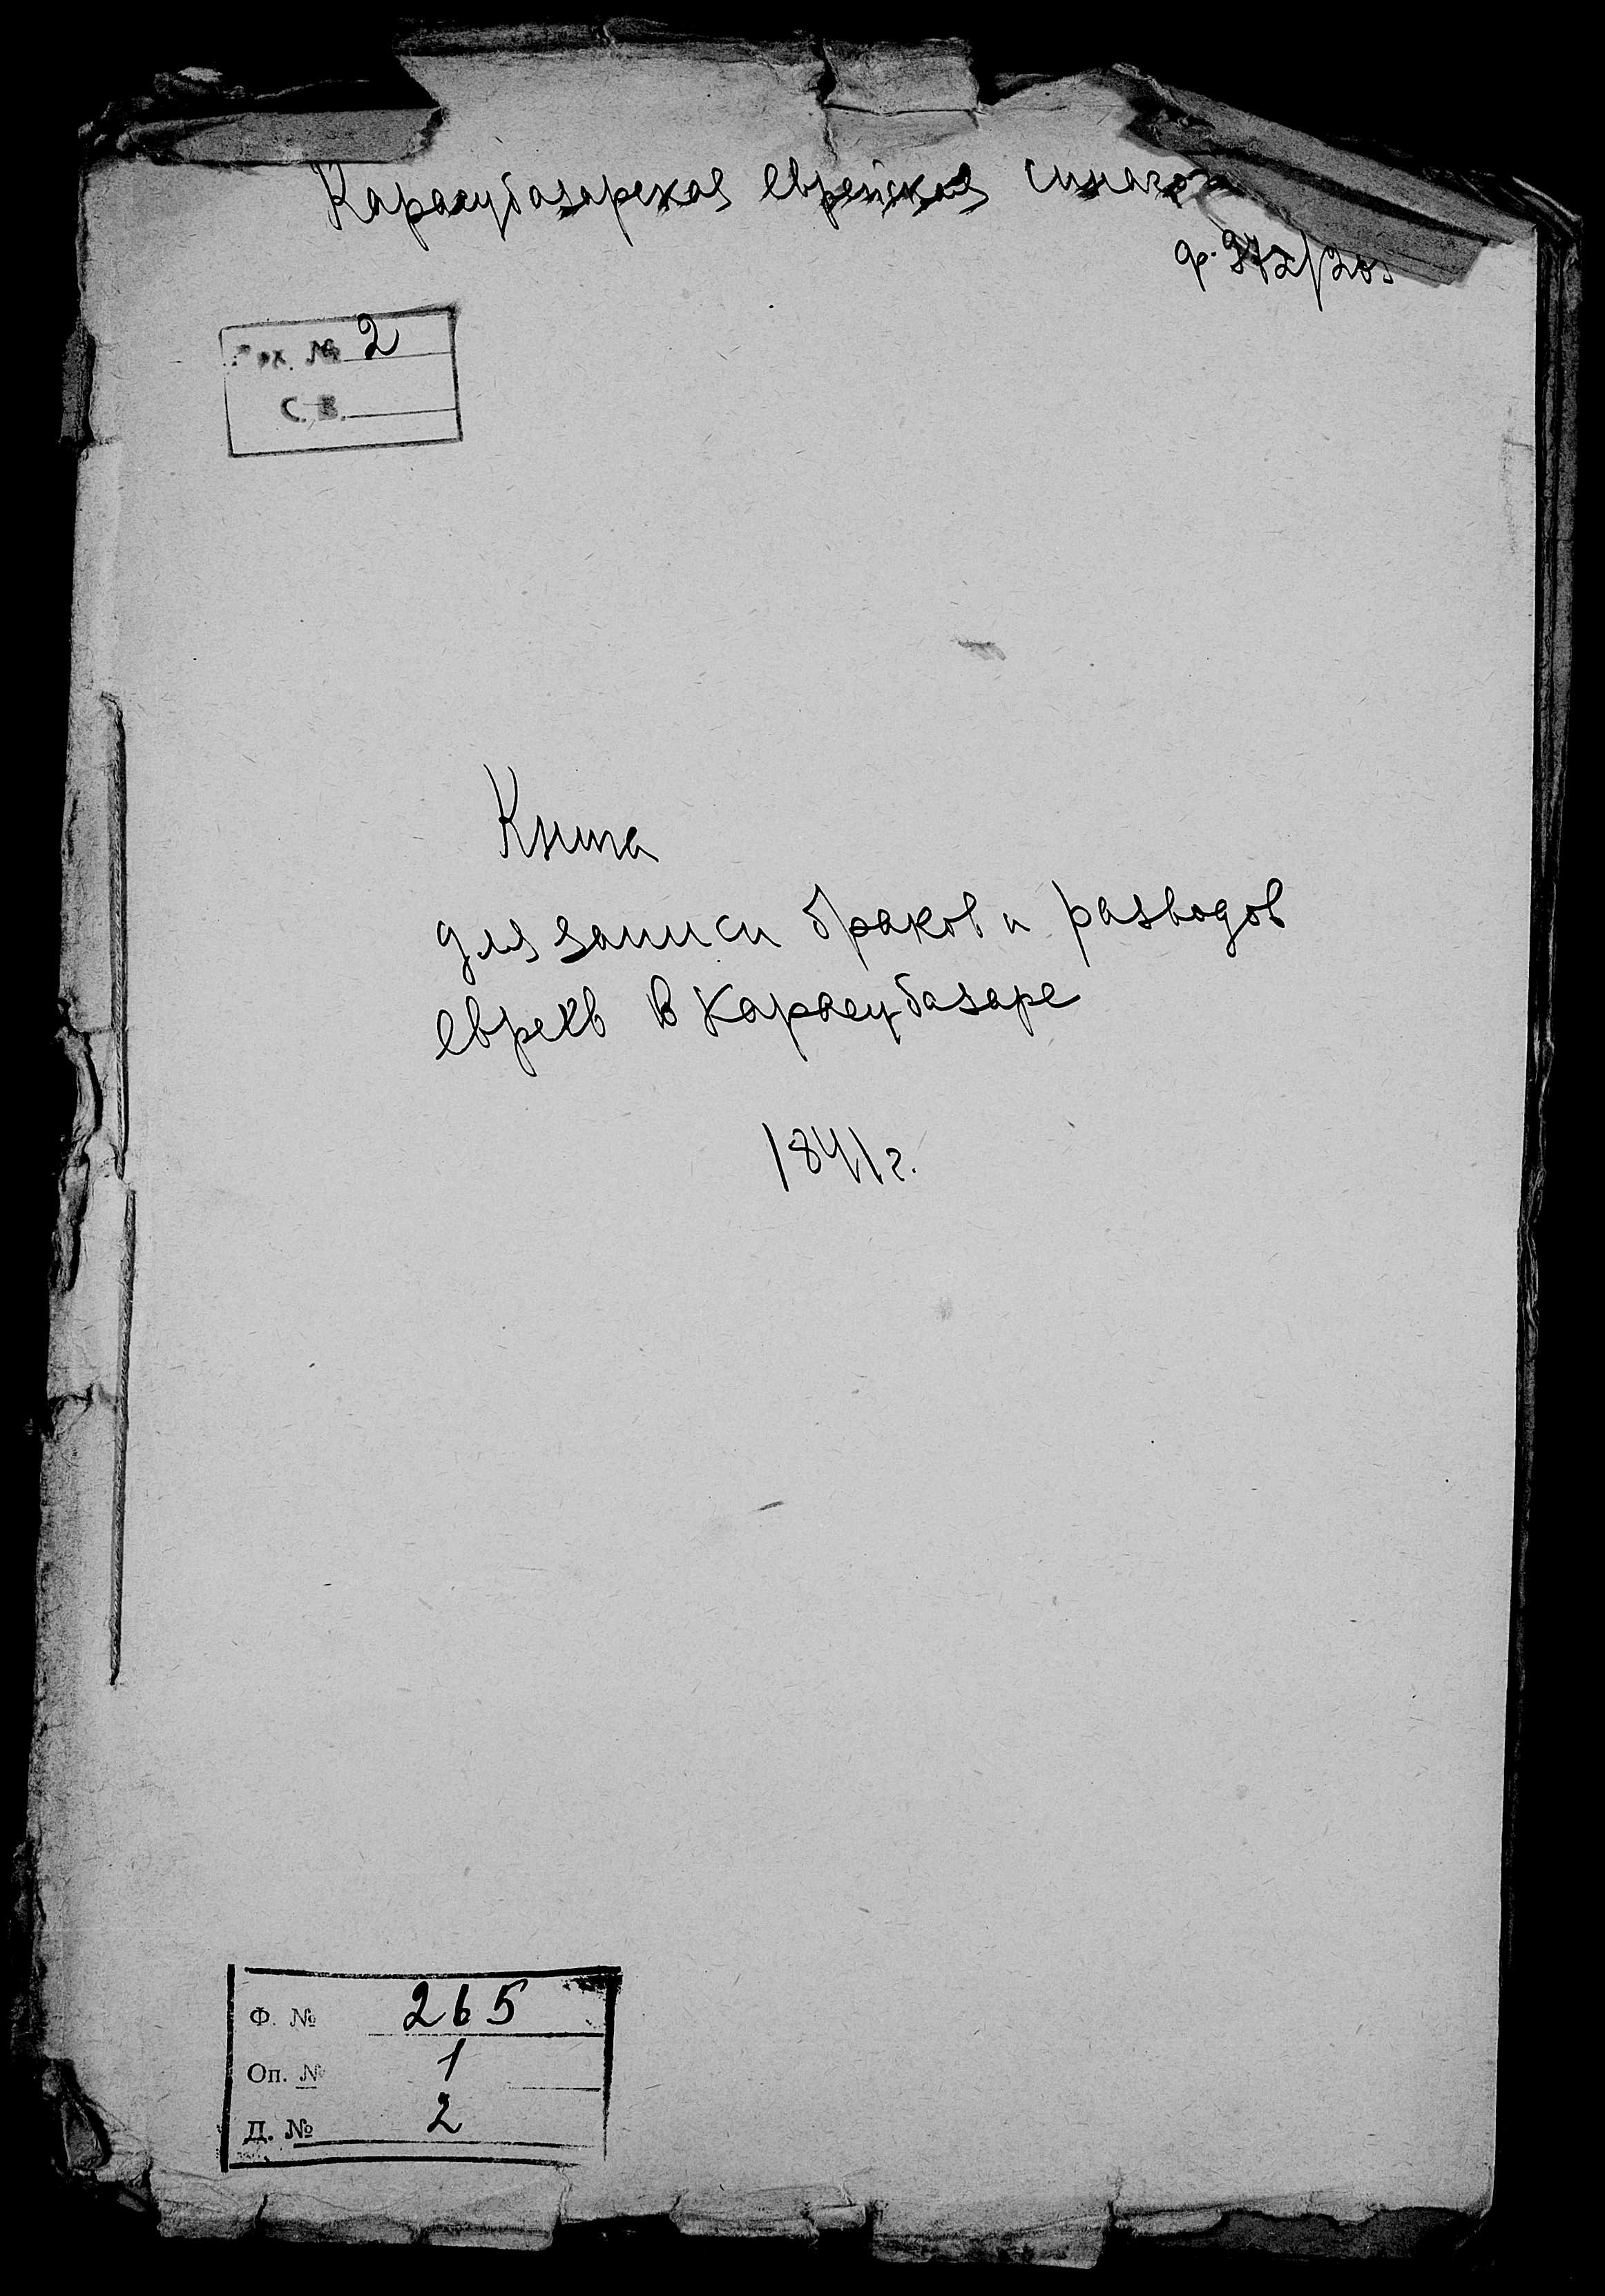 Карасубазарская еврейская синаго
ф. 272/203
Арх. № 2
С. В.
Книга
для записи браков и разводов
евреев в Карасубазаре
1841 г.
Ф. № 265
Оп. № 1
Д. № 2